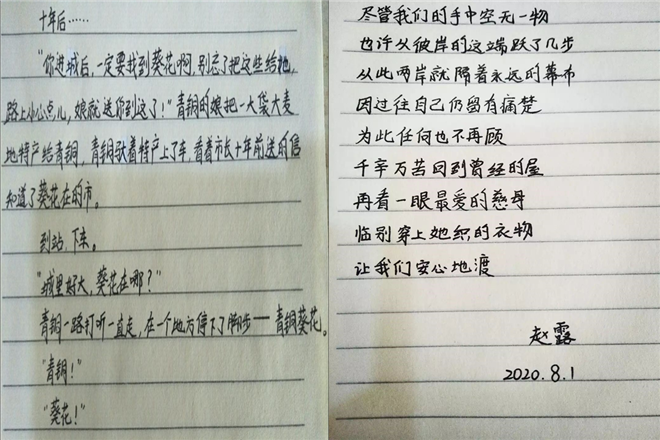 十年后……
"你进城后,一定要找到葵花啊,别忘了把这些给她,
路上小心点儿,娘就送你到这了!"青铜的娘把一大袋大麦
地特产给青铜,青铜驮着特产上了车,看着市长十年前送的信
知道了葵花在的市。
到站,下车。
"城里好大,葵花在哪?"
青铜一路打听一直走,在一个地方停下了脚步——青铜葵花。
"青铜!"
"葵花!"
尽管我们的手中空无一物
也许从彼岸的这端跃了几步
从此两岸就隔着永远的幕布
因过往自己仍留有痛楚
为此任何也不再顾
千辛万苦回到曾经的屋
再看一眼最爱的慈母
临别穿上她织的衣物
让我们安心地渡
赵露
2020.8.1